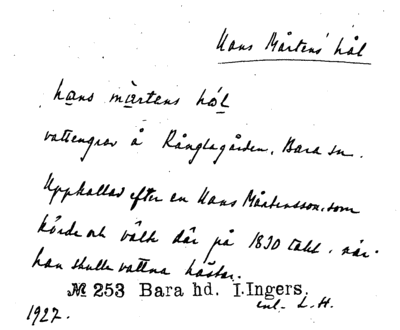 Hans Mårtens' hål
hans mårtens hål
vattengrav å Rånglagården, Bara sn.
Uppkallad efter en Hans Mårtensson, som
körde och välte där på 1830 talet, när
han skulle vattna hästar.
№ 253 Bara hd. I. Ingers.
enl. L. H.
1927.